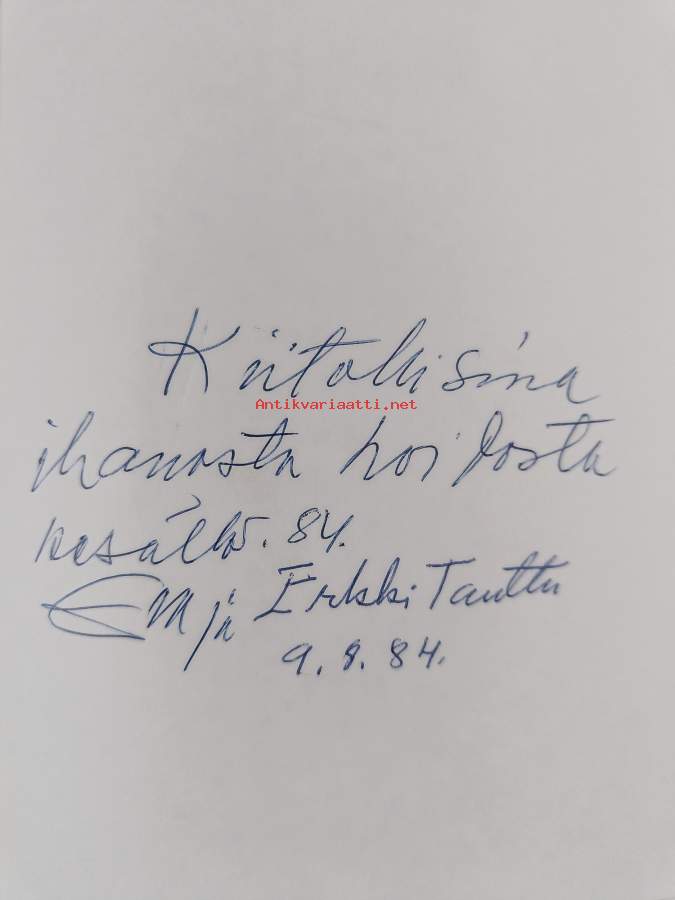 Kiitollisina
Antikvariaatti.net
ihanasta hoidosta
kesällä. 84.
Erkki Tanttu
9. 8. 84.